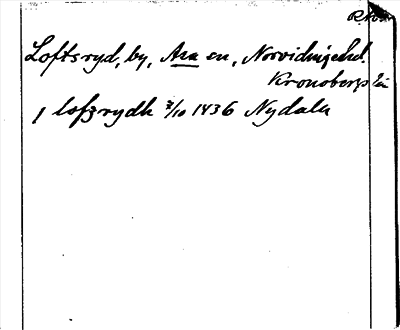 Loftsryd, by, Asa sn, Norvidinge hd.
Kronobergs län
j lofzrydh 3/10 1436 Nydala